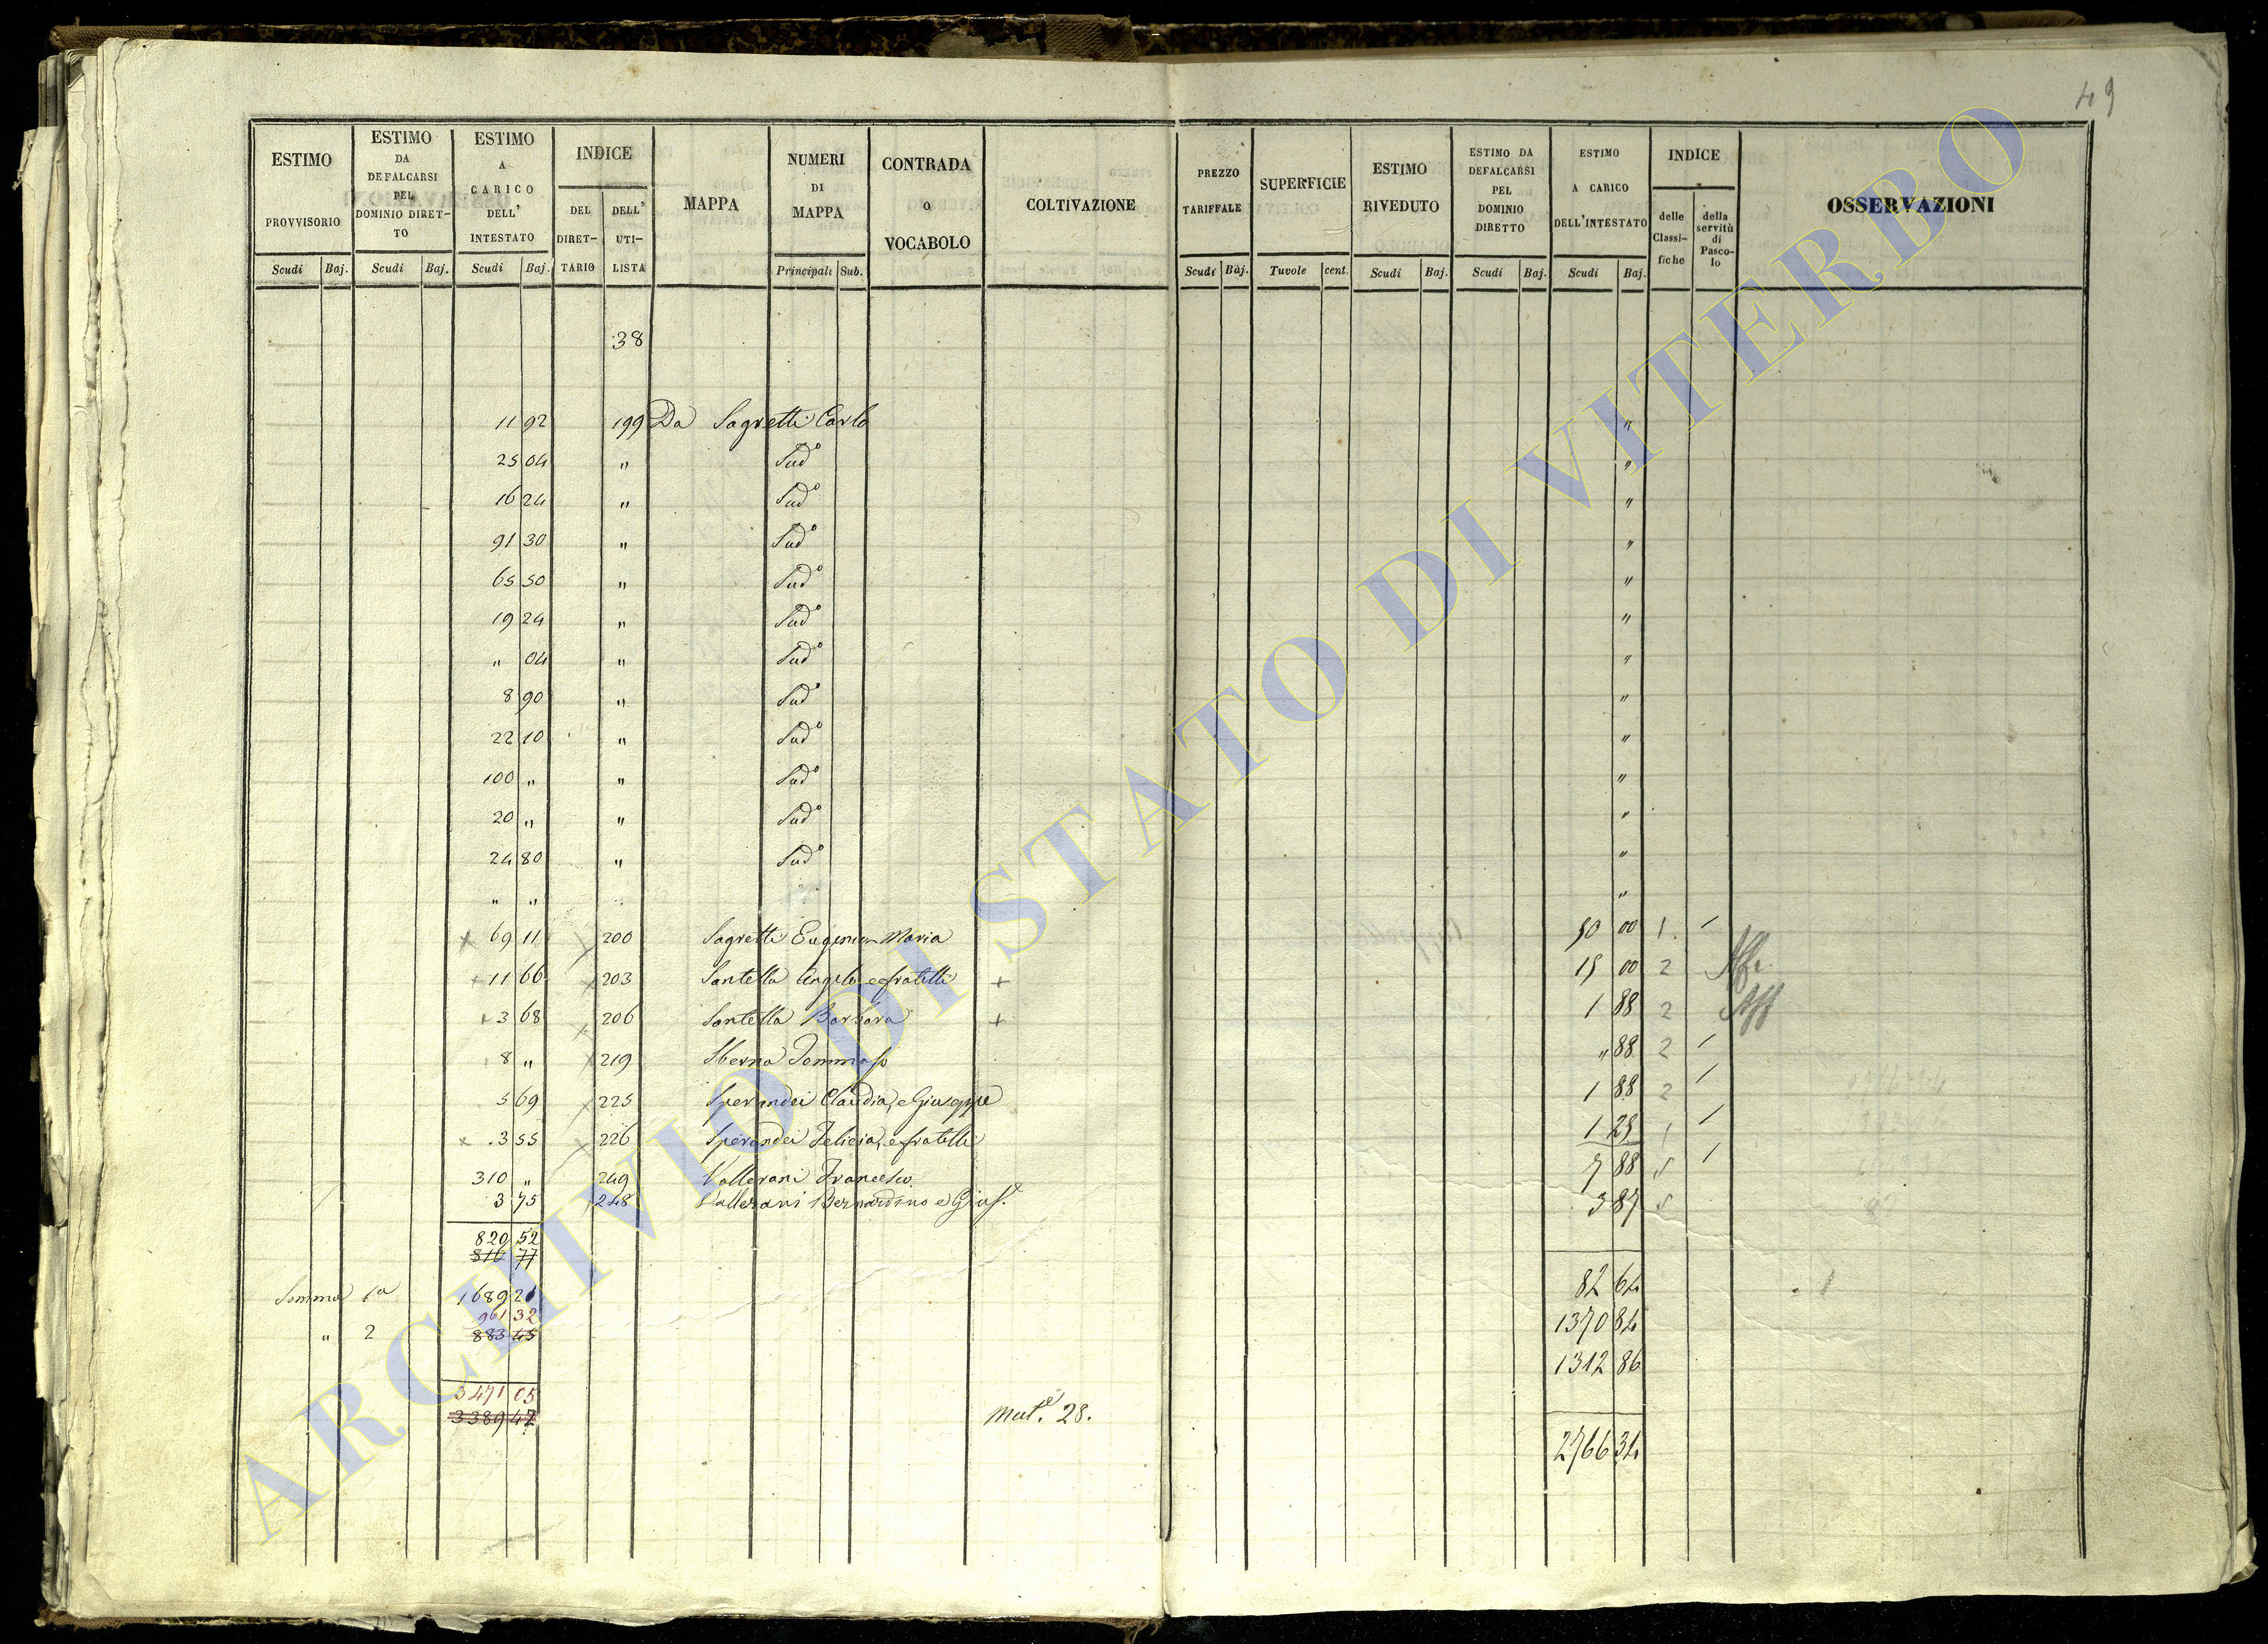 49
ESTIMO PROVVISORIO ESTIMO DA DEFALCARSI PEL DOMINIO DIRET-TO ESTIMO A CARICO DELL' INTESTATO INDICE DEL DIRET-TARIO DELL' UTI-LISTA MAPPA NUMERI DI MAPPA CONTRADA O VOCABOLO COLTIVAZIONE PREZZO TARIFFALE SUPERFICIE ESTIMO RIVEDUTO ESTIMO DA DEFALCARSI PEL DOMINIO DIRETTO ESTIMO A CARICO DELL'INTESTATO INDICE delle Classi-fiche della servitù di Pasco-lo OSSERVAZIONI
Scudi Baj. Scudi Baj. Scudi Baj. Principali Sub. Scudi Baj. Tavole cent. Scudi Baj. Scudi Baj. Scudi Baj.
38
11 92 199 Da Sagretti Carlo "
25 04 " Sudº "
16 24 " Sudº "
91 30 " Sudº "
65 50 " Sudº "
19 24 " Sudº "
" 04 " Sudº "
8 90 " Sudº "
22 10 " Sudº "
100 " " Sudº "
20 " " Sudº "
24 80 " Sudº "
" " "
+ 69 11 + 200 Sagretti Eugenia Maria 50 00 1
+ 11 66 + 203 Santella Angelo e fratelli + 15 00 2
+ 3 68 + 206 Santella Barbara + 1 88 2
8 " + 219 Sberna Tommaso " 88 2
5 69 + 225 Sperandei Claudia, e Giuseppe 1 88 2
+ 3 55 + 226 Sperandei Felicia, e fratelli 1 25 1
310 " 249 Vallerani Francesco 7 88
3 75 248 Vallerani Bernardino e Gius.e 3 87
820 52
816 77
Somma 1a 1689 21 82 64
961 32 1370 84
" 2 883 45
1312 86
3471 05
3389 42 Mut.e 28.
2766 34
ARCHIVIO DI STATO DI VITERBO